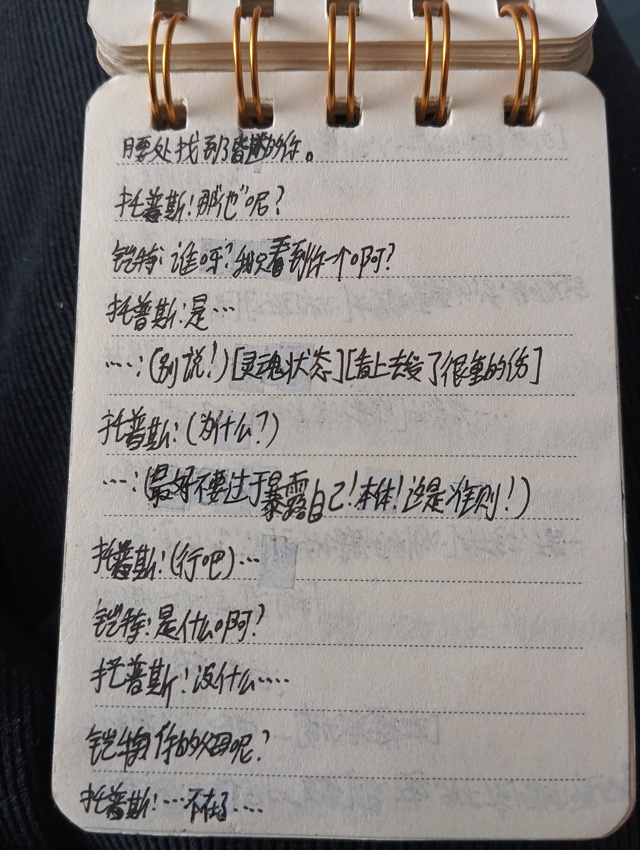 腰处找到了昏迷的你。
托普斯:那"他"呢?
铠特:谁呀?我只看到你一个啊?
托普斯:是…
……:(别说!)[灵魂状态][看上去受了很重的伤]
托普斯:(为什么?)
……:(最好不要过于暴露自己!本体!这是准则!)
托普斯:(行吧)…
铠特:是什么啊?
托普斯:没什么……
铠特:你的父母呢?
托普斯:…不在了……